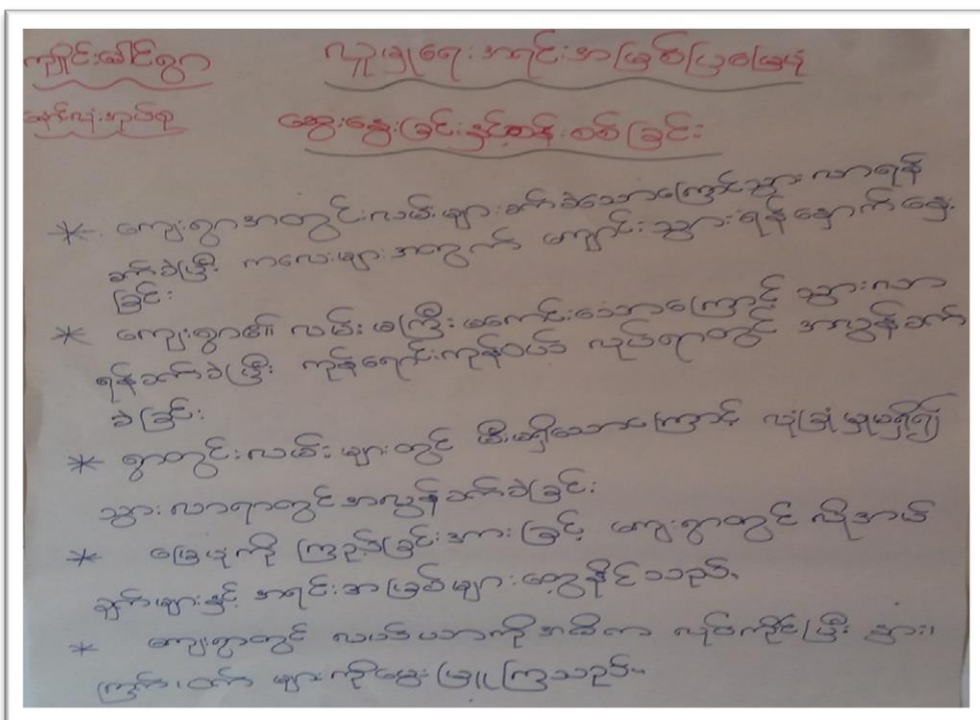 ကျိုင်းခေါင်ရွာ
လူမှုရေး အရင်းအမြစ်ပြမြေပုံ
ဆန်လုံးအုပ်စု
ဆွေးနွေးခြင်းနှင့်စန်းစစ်ခြင်း
* ကျေးရွာအတွင်းလမ်းများခက်ခဲသောကြောင့်သွားလာရန်
ခက်ခဲပြီး ကလေးများအတွက် ကျောင်းသွားရန်နှောက်နှေး
ခြင်း
* ကျေးရွာ၏ လမ်းမကြီးမကောင်းသောကြောင့် သွားလာ
ရန်ခက်ခဲပြီး ကုန်ရောင်းကုန်ဝယ် လုပ်ရာတွင် အလွန်ခက်
ခဲခြင်း
* ရွာတွင်းလမ်းများတွင် မီးမရှိသောကြောင့် လုံခြုံမှုမရှိ၍
သွားလာရာတွင်အလွန်ခက်ခဲခြင်း
* မြေပုံကို ကြည့်ခြင်းအားဖြင့် ကျေးရွာတွင် လိုအပ်
ချက်များနှင့် အရင်းအမြစ်များတွေ့နိုင်သည်။
* ကျေးရွာတွင် လယ်ယာကိုအဓိက လုပ်ကိုင်ပြီး နွား၊
ကြက်၊ ဝက် များကိုမွေးမြူကြသည်။